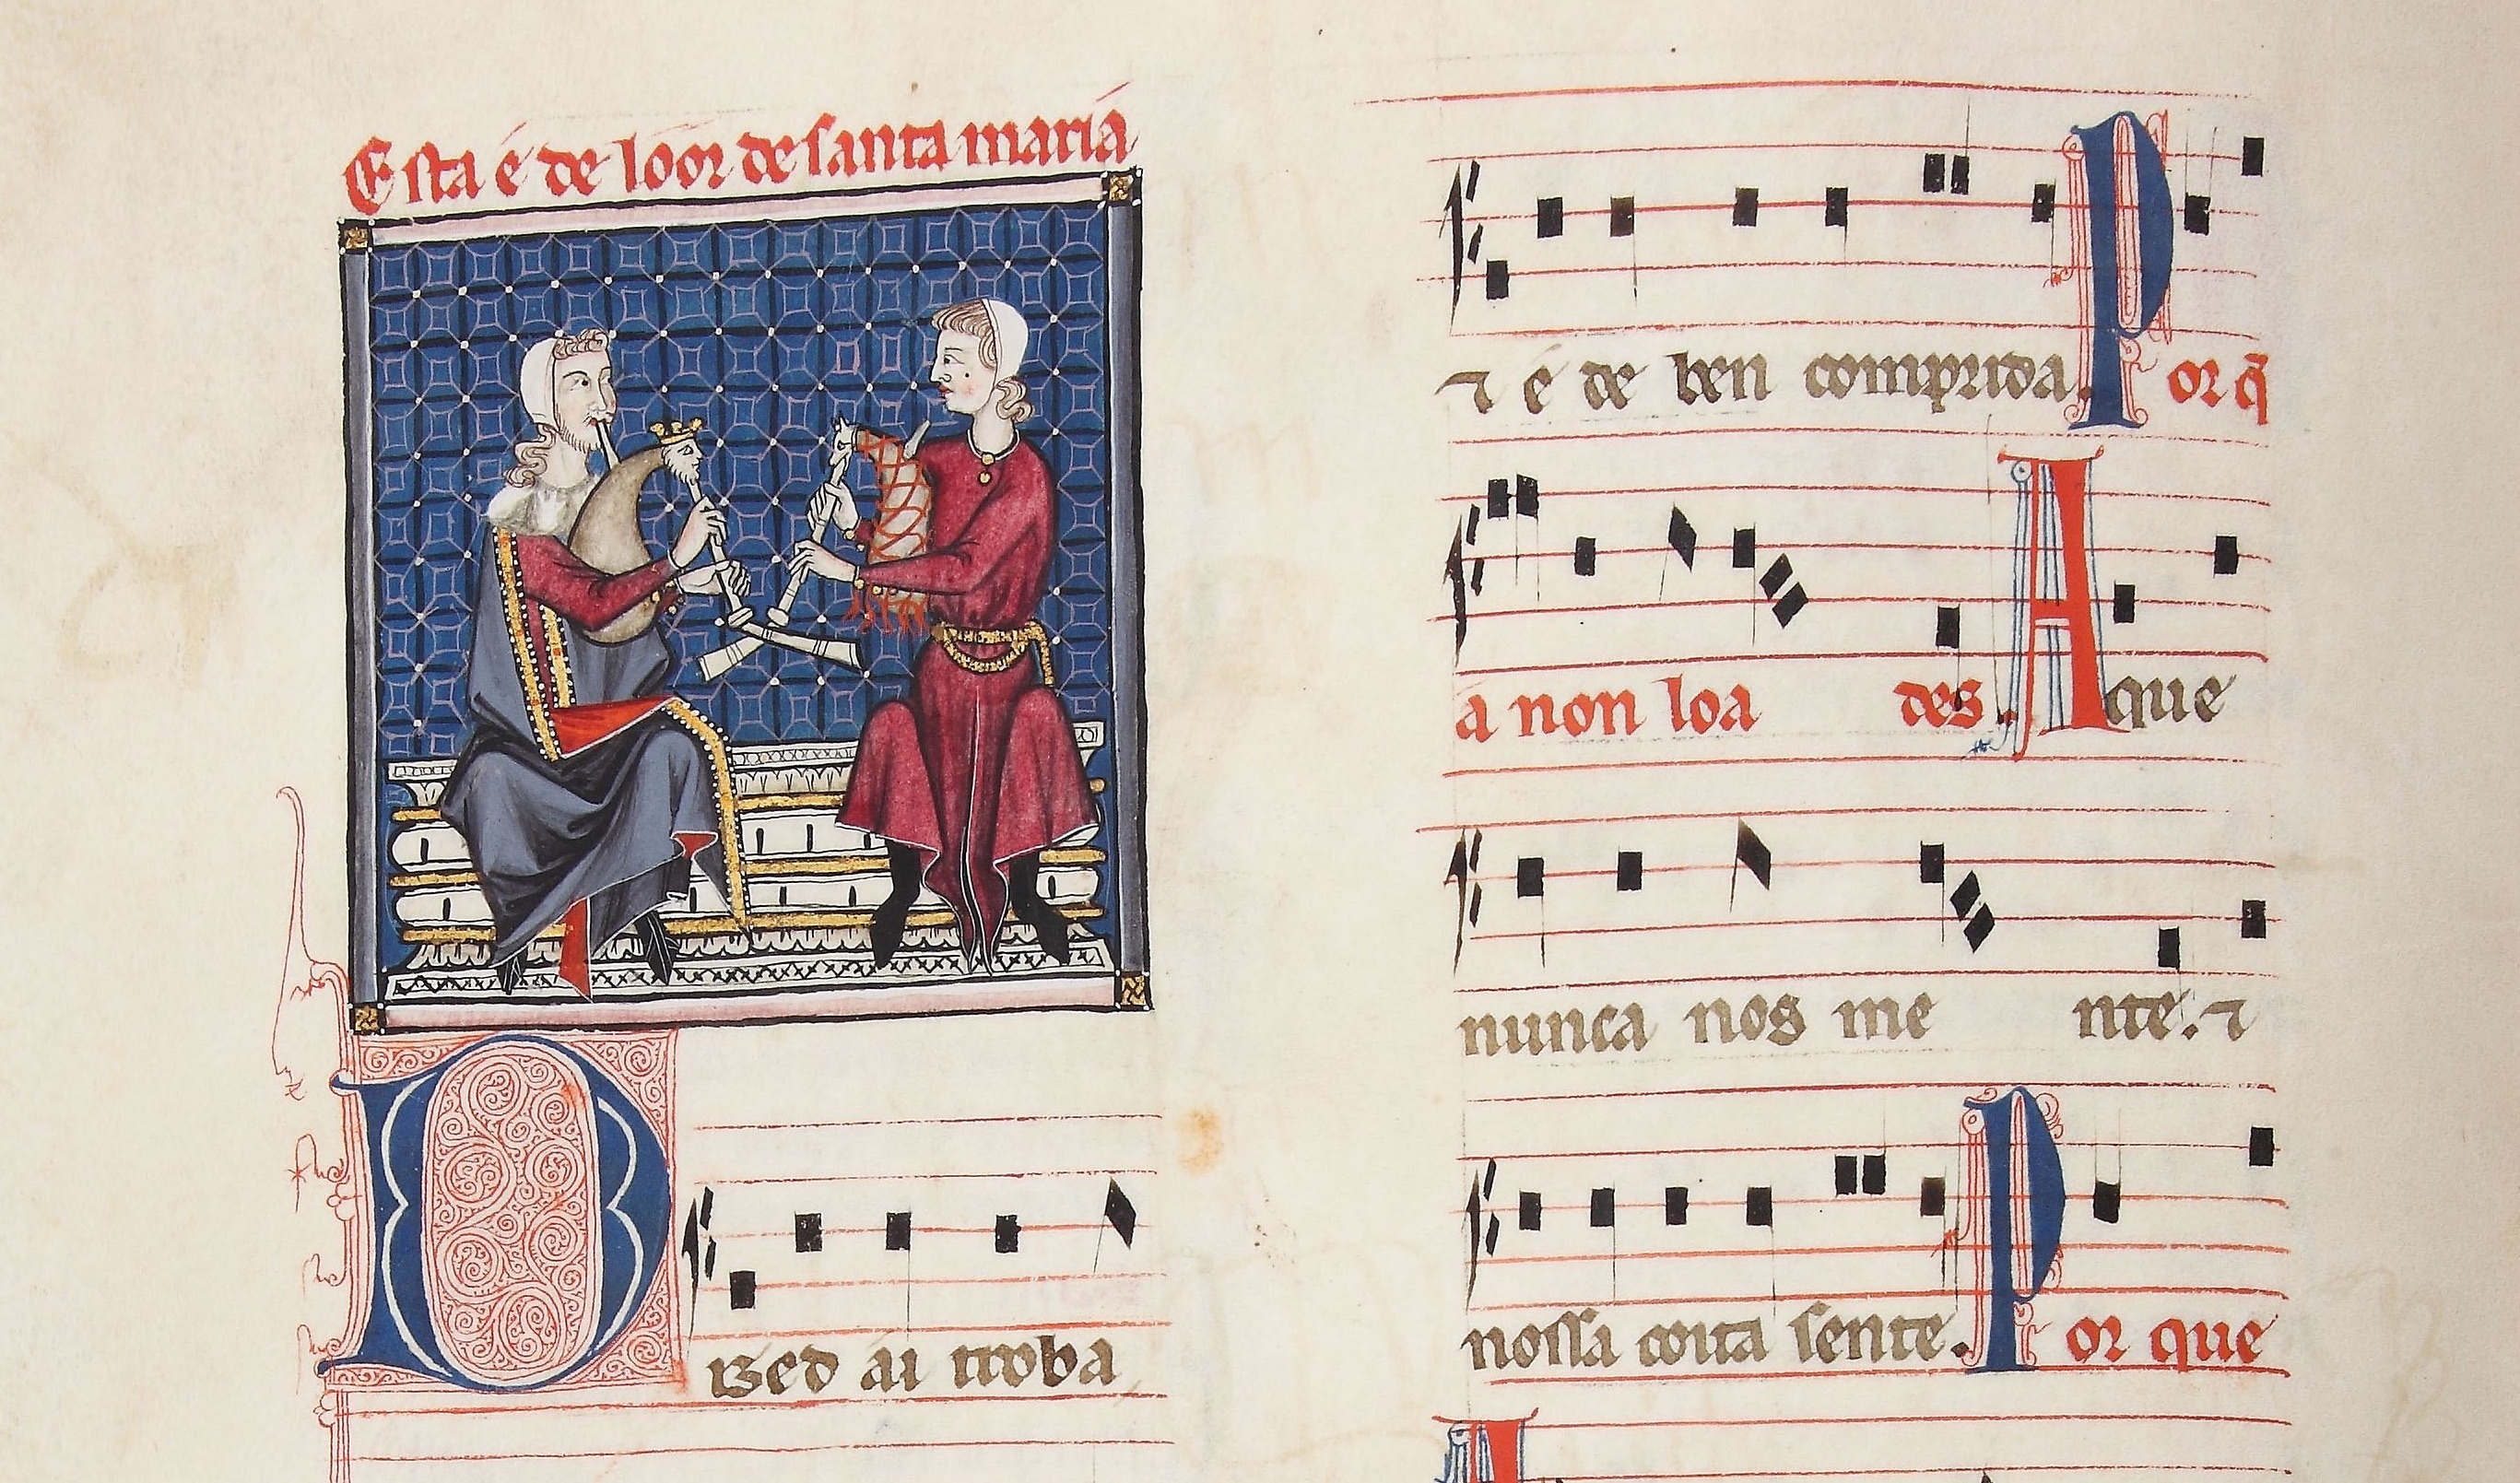 Esta é de loor de santa maria
DIZed ai troba
⁊ é de ben comprida. Por q̃
a non loa des. A que
nunca nos me nte. ⁊
nossa coita sente. Por que